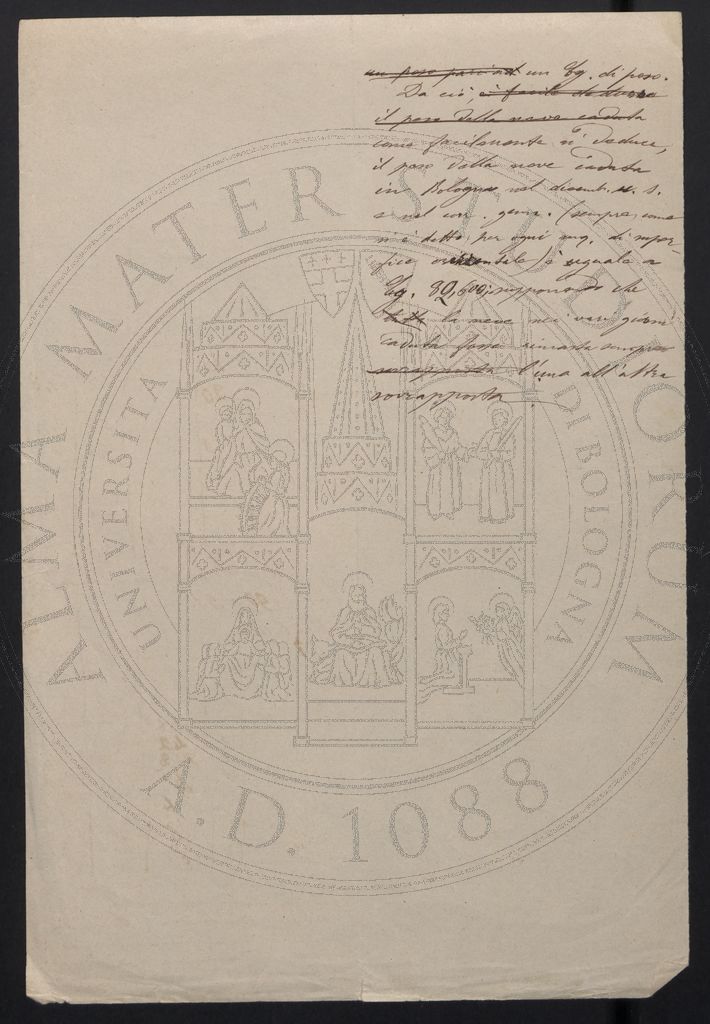 un peso pari ad un Cg. di peso.
Da ciò, è facile dedurre
il peso della neve caduta
come facilmente si deduce,
il peso della neve caduta
in Bologna nel dicemb. u. s.
e nel corr. genn. (sempre, come
si è detto, per ogni mq. di super-
ficie orizzontale) è eguale a
Cg. 82,600; supponendo che
tutta la neve nei vari giorni
caduta fosse rimasta sempre
sovrapposta l'una all'altra
sovrapposta
ALMA MATER STUDIORUM
UNIVERSITA DI BOLOGNA
A.D. 1088